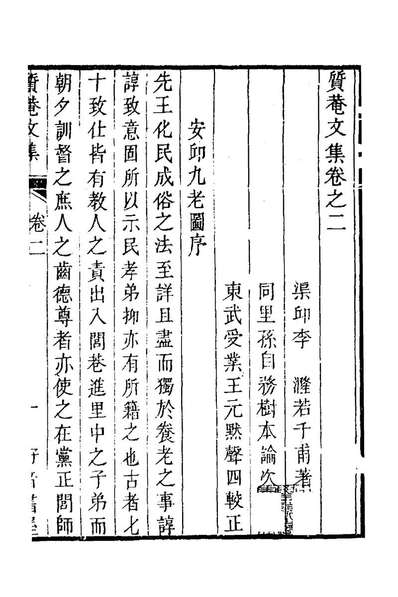 質菴文集卷之二
渠邱李 漋若千甫著
同里孫自務樹本論次
東武受業王元黙聲四較正
安邱九老圖序
先王化民成俗之法至詳且盡而獨於養老之事諄
諄致意固所以示民孝弟抑亦有所籍之也古者七
十致仕皆有教人之責出入閭巷進里中之子弟而
朝夕訓督之庶人之齒德尊者亦使之在黨正閭師
質菴文集
卷二
一